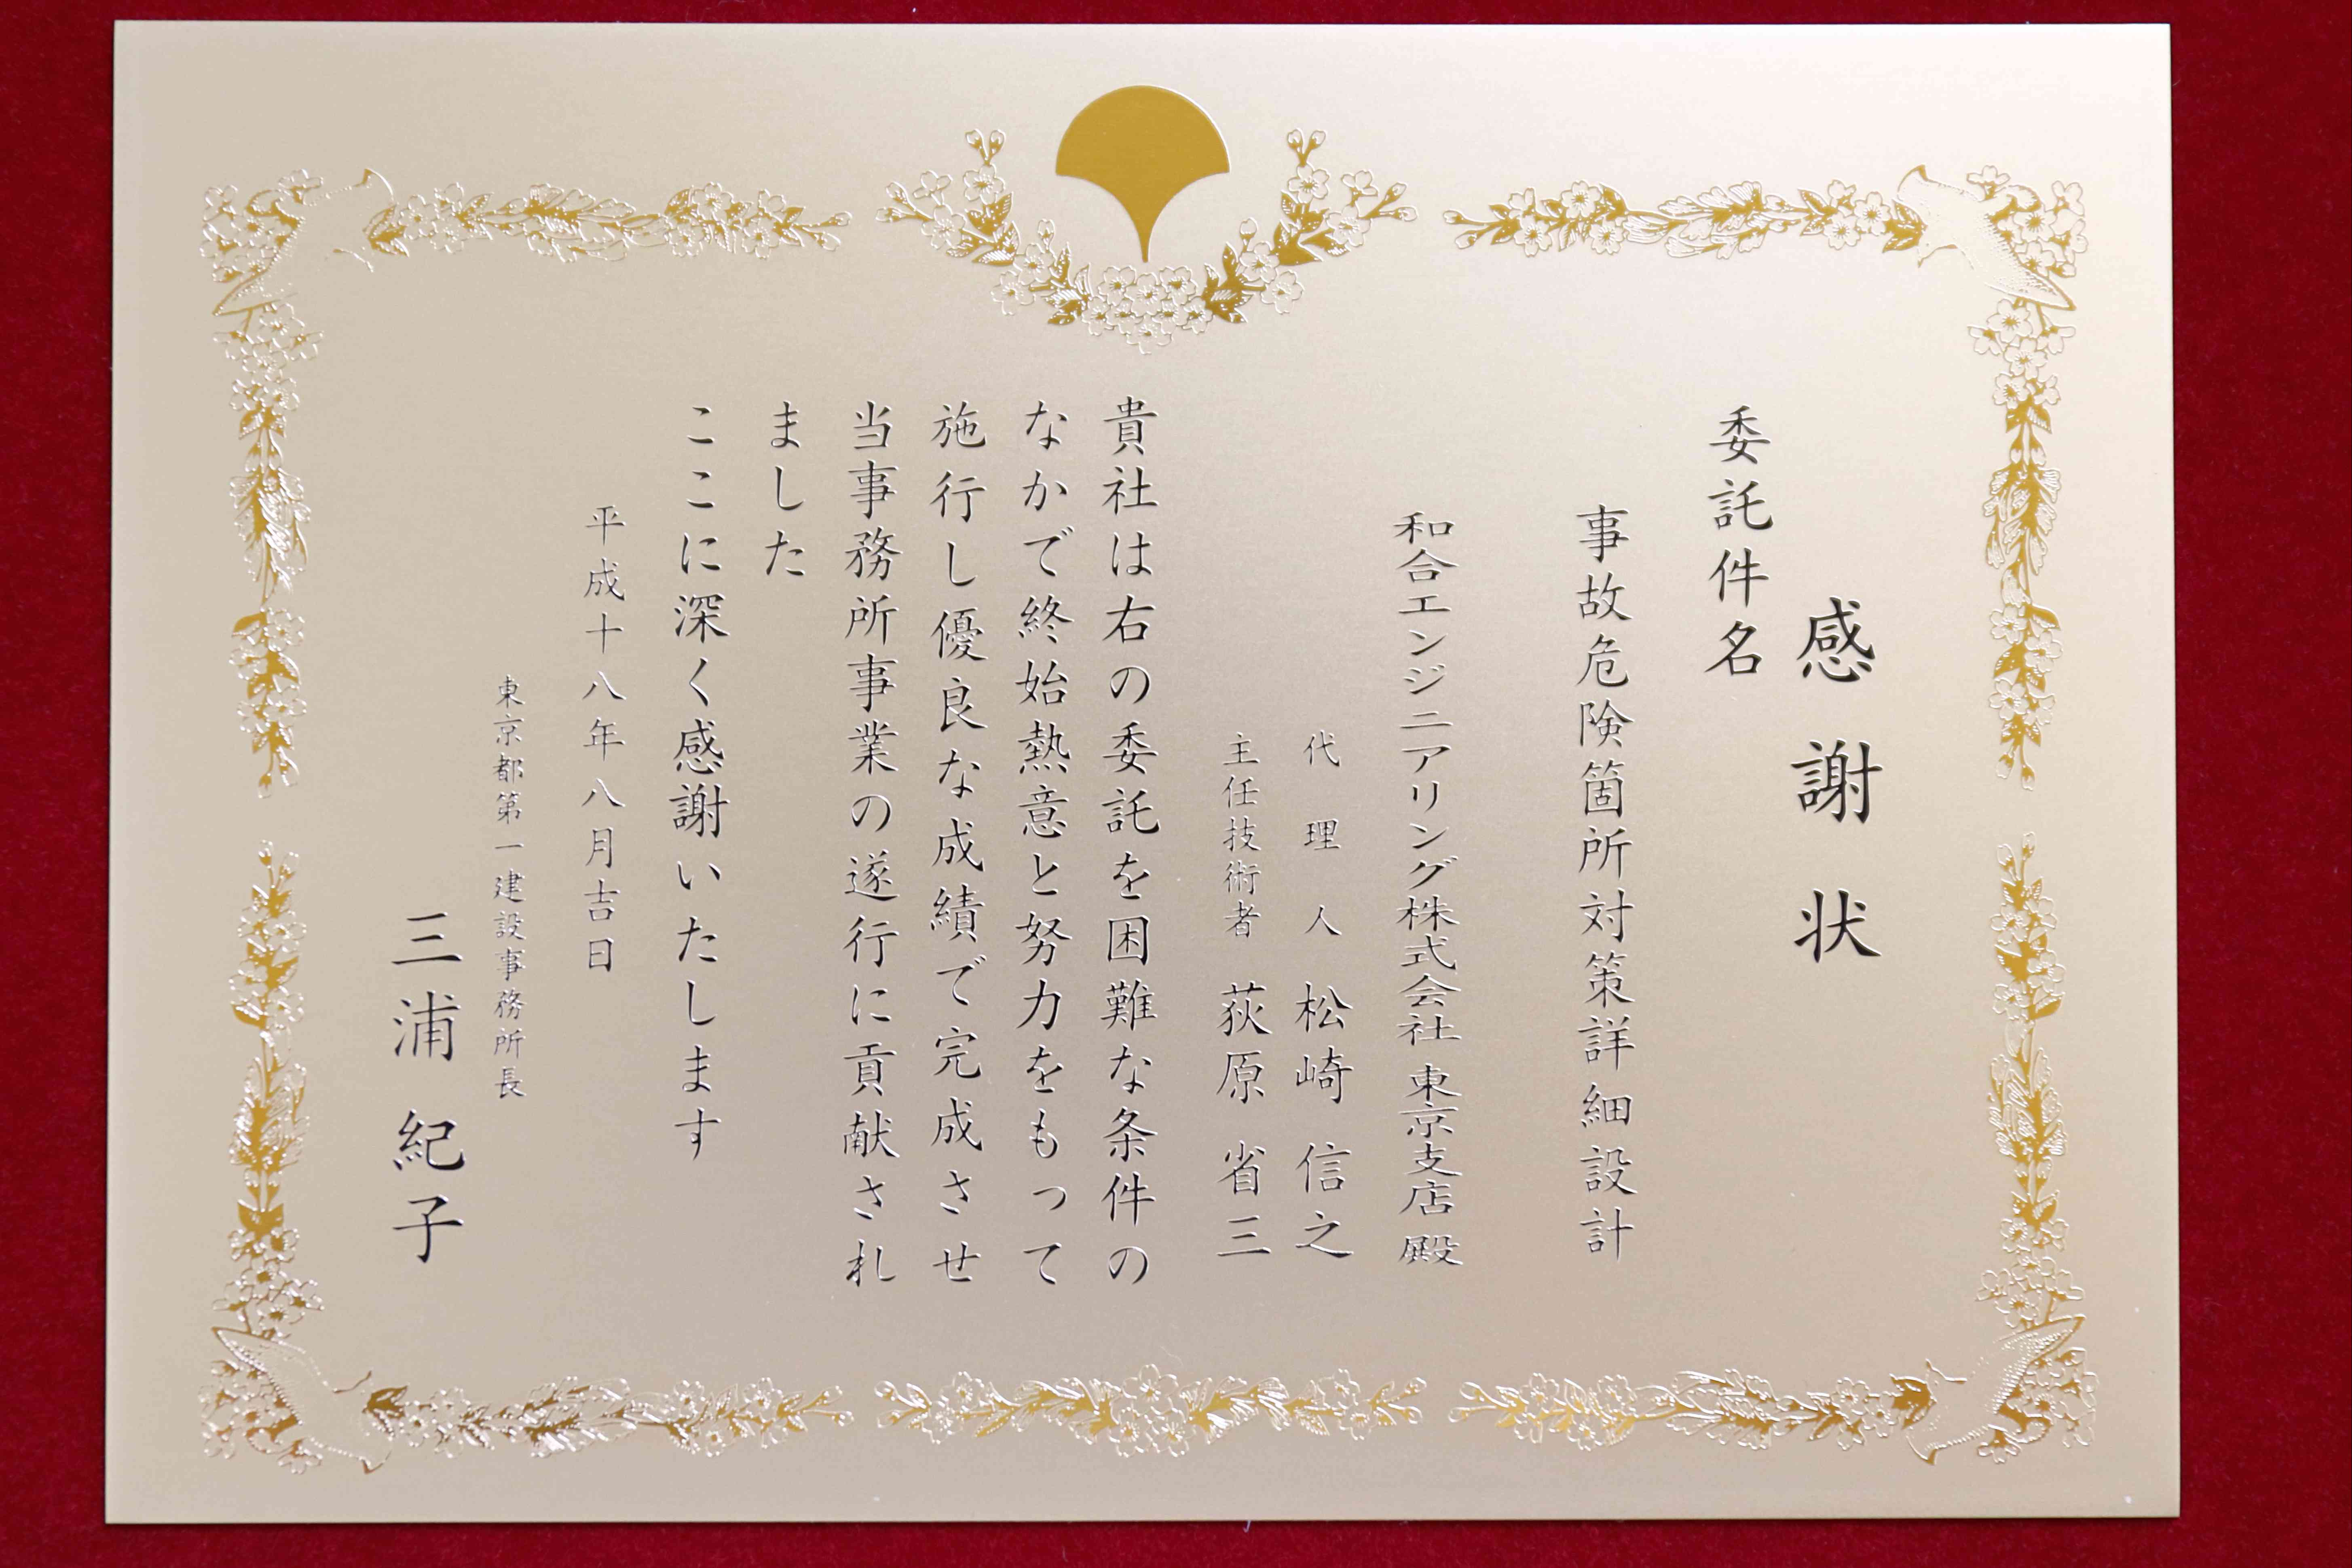 感謝状
委託件名
事故危険箇所対策詳細設計
和合エンジニアリング株式会社 東京支店 殿
代理人 松崎 信之
主任技術者 荻原 省三
貴社は右の委託を困難な条件の
なかで終始熱意と努力をもって
施行し優良な成績で完成させ
当事務所事業の遂行に貢献され
ました
ここに深く感謝いたします
平成十八年八月吉日
東京都第一建設事務所長
三浦 紀子